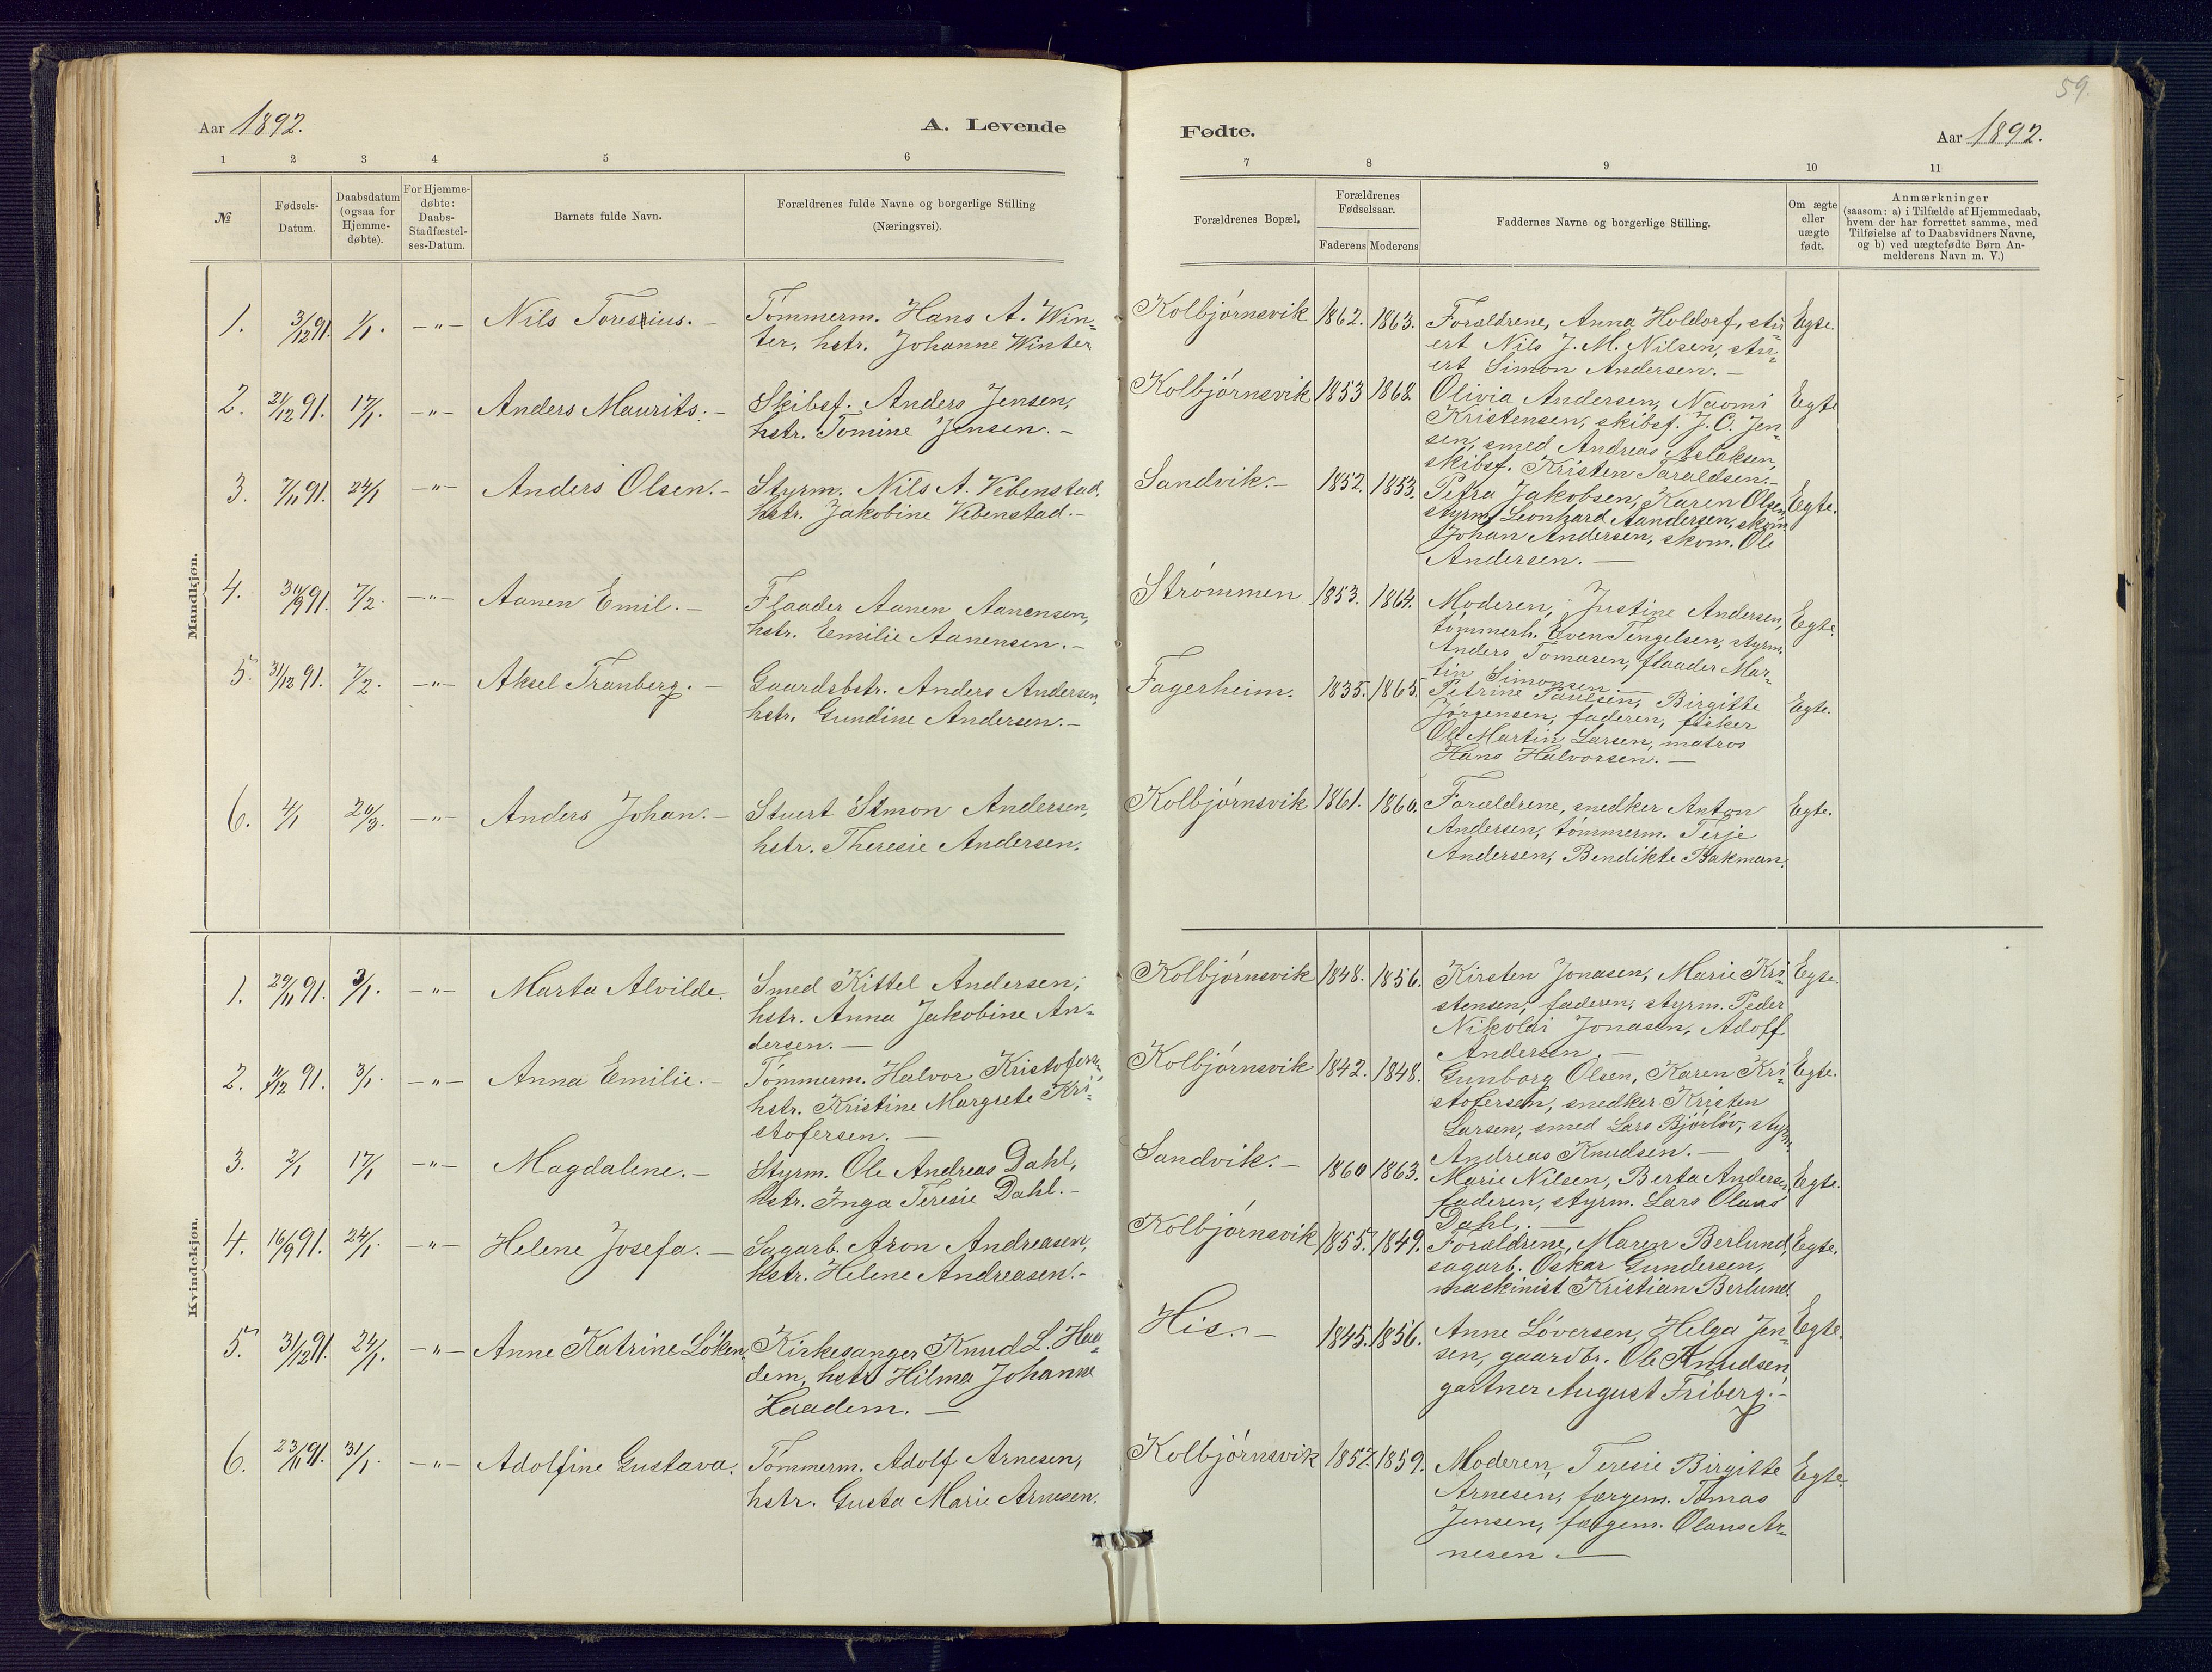 59.
Aar 1892.
A. Levende
Fødte.
Aar 1892.
1 2 3 4 5 6 7 8 9 10 11
№
Fødsels-
Datum.
Daabsdatum
(ogsaa for
Hjemme-
døbte).
For Hjemme-
døbte:
Daabs-
Stadfæstel-
ses-Datum.
Barnets fulde Navn.
Forældrenes fulde Navne og borgerlige Stilling
(Næringsvei).
Forældrenes Bopæl.
Forældrenes
Fødselsaar.
Faderens Moderens
Faddernes Navne og borgerlige Stilling.
Om ægte
eller
uægte
født.
Anmærkninger
(saasom: a) i Tilfælde af Hjemmedaab,
hvem der har forrettet samme, med
Tilføielse af to Daabsvidners Navne,
og b) ved uægtefødte Børn An-
melderens Navn m. V.)
Mandkjøn.
1. 3/12 91. 1/1. -"- Nils Toresius. -
Tömmerm. Hans A. Win-
ter, hstr. Johanne Winter.
Kolbjörnsvik 1862. 1863.
Forældrene, Anna Holdorf, stu-
ert Nils J. M. Nilsen, stu-
ert Simon Andersen. -
Egte.
2. 24/12 91. 17/1. -"- Anders Maurits. -
Skibsf. Anders Jensen,
hstr. Tomine Jensen. -
Kolbjörnsvik 1853 1868.
Olivia Andersen, Naomi
Kristensen, skibsf. J. O. Jen-
sen, smed Andreas Aslaksen,
skibsf. Kristen Taraldsen. -
Egte
3. 7/11 91. 24/1 -"- Anders Olsen. -
Styrm. Nils A. Vebenstad,
hstr. Jakobine Vebenstad. -
Sandvik. - 1852. 1853.
Petra Jakobsen, Karen Olsen,
styrm. Leonhard Aandersen, skom.
Johan Andersen, skom. Ole
Andersen. -
Egte.
4. 30/9 91. 7/2. -"- Aanen Emil. -
Flaader Aanen Aanensen,
hstr. Emilie Aanensen. -
Strömmen 1853. 1864.
Moderen, Justine Andersen,
tömmerh. Even Tengelsen, styrm.
Anders Tomasen, flaader Mar-
tin Simonsen. -
Egte.
5. 31/12 91. 7/2. -"- Aksel Tranberg. -
Gaardsbstr. Anders Andersen,
hstr. Gundine Andersen. -
Fagerheim. 1835. 1865.
Petrine Paulsen, Birgitte
Jörgensen, faderen, fisker
Ole Martin Larsen, matros
Hans Halvorsen. -
Egte.
6. 4/1 20/3. -"- Anders Johan. -
Stuert Simon Andersen,
hstr. Theresie Andersen.
Kolbjörnsvik 1861. 1860.
Forældrene, snedker Anton
Andersen, tömmerm. Terje
Andersen, Bendikte Bakman.
Egte.
Kvindekjøn.
1. 29/11 91. 3/1. -"- Marta Alvilde.
Smed Kittel Andersen,
hstr. Anna Jakobine An-
dersen. -
Kolbjörnsvik 1848. 1856.
Kirsten Jonasen, Marie Kri-
stensen, faderen, styrm. Peder
Nikolai Jonasen, Adolf
Andersen. -
Egte.
2. 11/12 91. 3/1. -"- Anna Emilie. -
Tömmerm. Halvor Kristofersen,
hstr. Kristine Margrete Kri-
stofersen. -
Kolbjörnsvik 1842. 1848.
Gunborg Olsen, Karen Kri-
stofersen, snedker Kristen
Larsen, smed Lars Björlöv, styrm.
Andreas Knudsen. -
Egte.
3. 2/1 17/1 -"- Magdalene. -
Styrm. Ole Andreas Dahl,
hstr. Inga Teresie Dahl. -
Sandvik. - 1860 1863.
Marie Nilsen, Berta Andersen,
faderen, styrm. Lars Olaus
Dahl. -
Egte.
4. 16/9 91. 24/1. -"- Helene Josefa. -
Sagarb. Aron Andreasen,
hstr. Helene Andreasen. -
Kolbjörnsvik 1855. 1849.
Forældrene, Maren Berlund,
sagarb. Oskar Gundersen,
maskinist Kristian Berlund.
Egte.
5. 31/12 91. 24/1. -"- Anne Katrine Löken.
Kirkesanger Knud L. Haa-
dem, hstr. Hilma Johanne
Haadem. -
His. - 1845. 1856.
Anne Löversen, Helga Jen-
sen, gaardbr. Ole Knudsen,
gartner August Friberg. -
Egte.
6. 23/11 91. 31/1. -"- Adolfine Gustava.
Tömmerm. Adolf Arnesen,
hstr. Gusta Marie Arnesen.
Kolbjörnsvik 1857. 1859.
Moderen, Teresie Birgitte
Arnesen, færgem. Tomas
Jensen, færgem. Olaus Ar-
nesen. -
Egte.